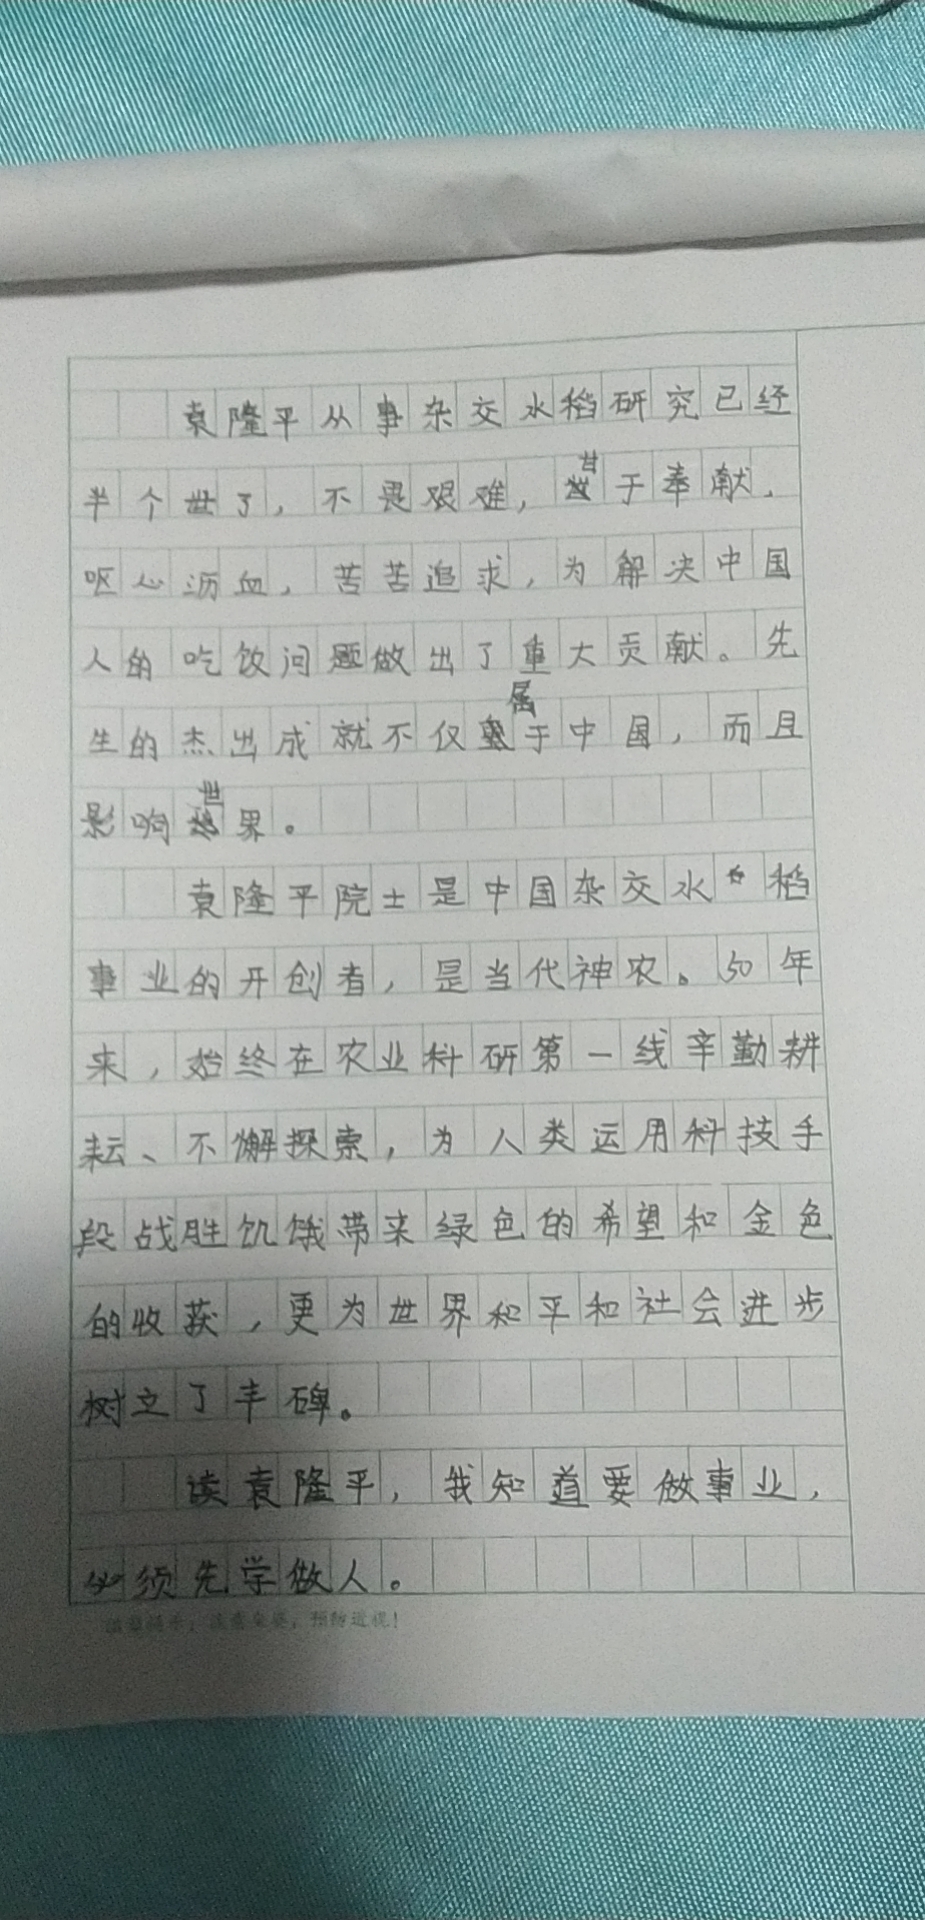 袁隆平从事杂交水稻研究已经
半个世了，不畏艰难，甘于奉献，
呕心沥血，苦苦追求，为解决中国
人的吃饮问题做出了重大贡献。先
生的杰出成就不仅属于中国，而且
影响世界。
袁隆平院士是中国杂交水稻
事业的开创者，是当代神农。50年
来，始终在农业科研第一线辛勤耕
耘、不懈探索，为人类运用科技手
段战胜饥饿带来绿色的希望和金色
的收获，更为世界和平和社会进步
树立了丰碑。
读袁隆平，我知道要做事业，
必须先学做人。
预防近视！